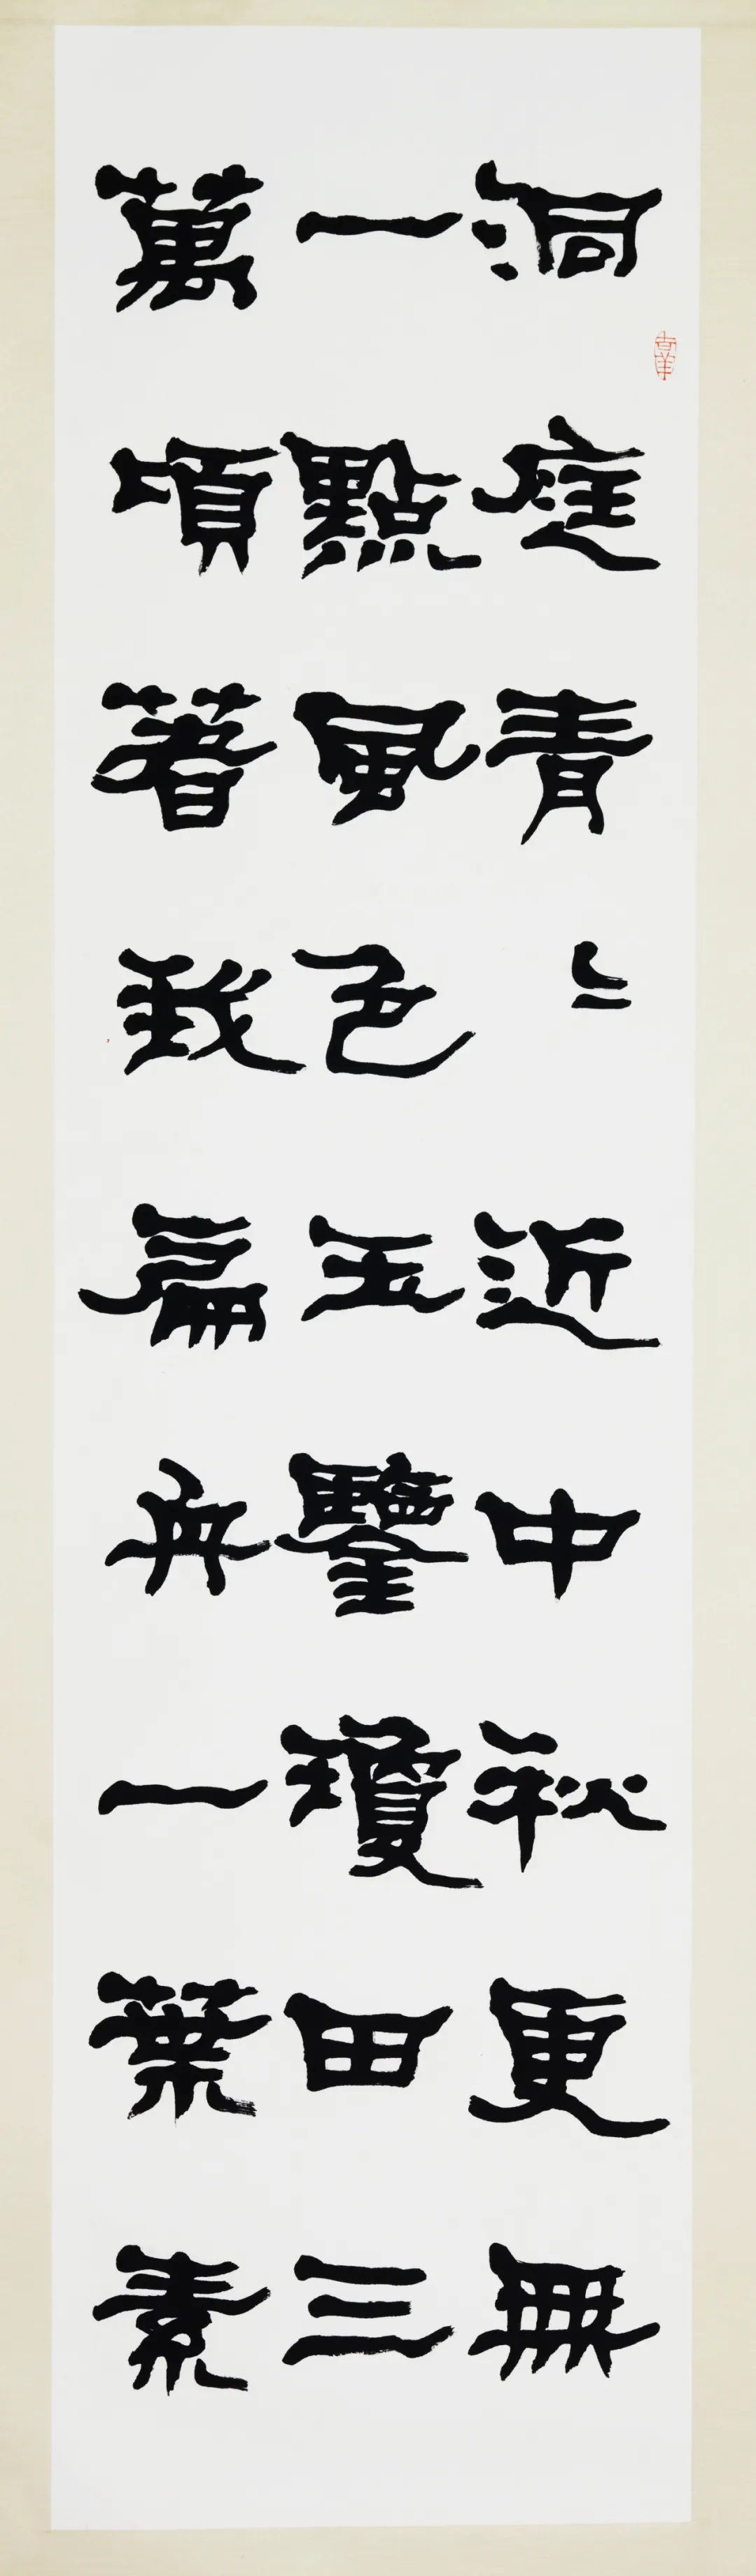 洞庭青〻近中秋更無
一點風色玉鑒瓊田三
萬頃著我扁舟一葉素
吉羊